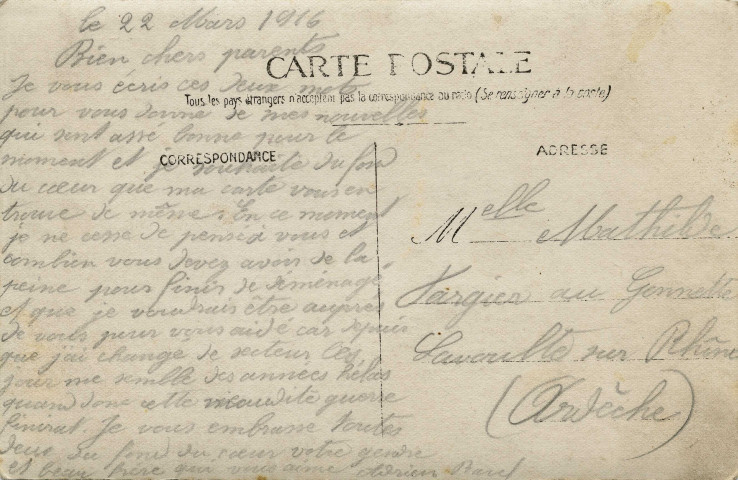 le 22 Mars 1916
Bien chers parents
CARTE POSTALE
Tous les pays étrangers n'acceptent pas la correspondance au recto (Se renseigner à la poste)
CORRESPONDANCE
Je vous écris ces deux mots
pour vous donné de mes nouvelles
qui sont assé bonne pour le
moment et je souhaite du fond
du cœur que ma carte vous en
trouve de même. En ce moment
je ne cesse de pensé à vous et
combien vous devez avoir de la
peine pour finir de déménagé,
et que je voudrais être auprès
de vous pour vous aidé car depuis
que j'ai changé de secteur les
jour me semble des années hélas
quand donc cette maudite guerre
finirat. Je vous embrasse toutes
deux du fond du cœur votre gendre
et beau frère qui vous aime Adrien
ADRESSE
Melle Mathilde
Vargier au Gonnette
Lavoulte sur Rhône
(Ardèche)